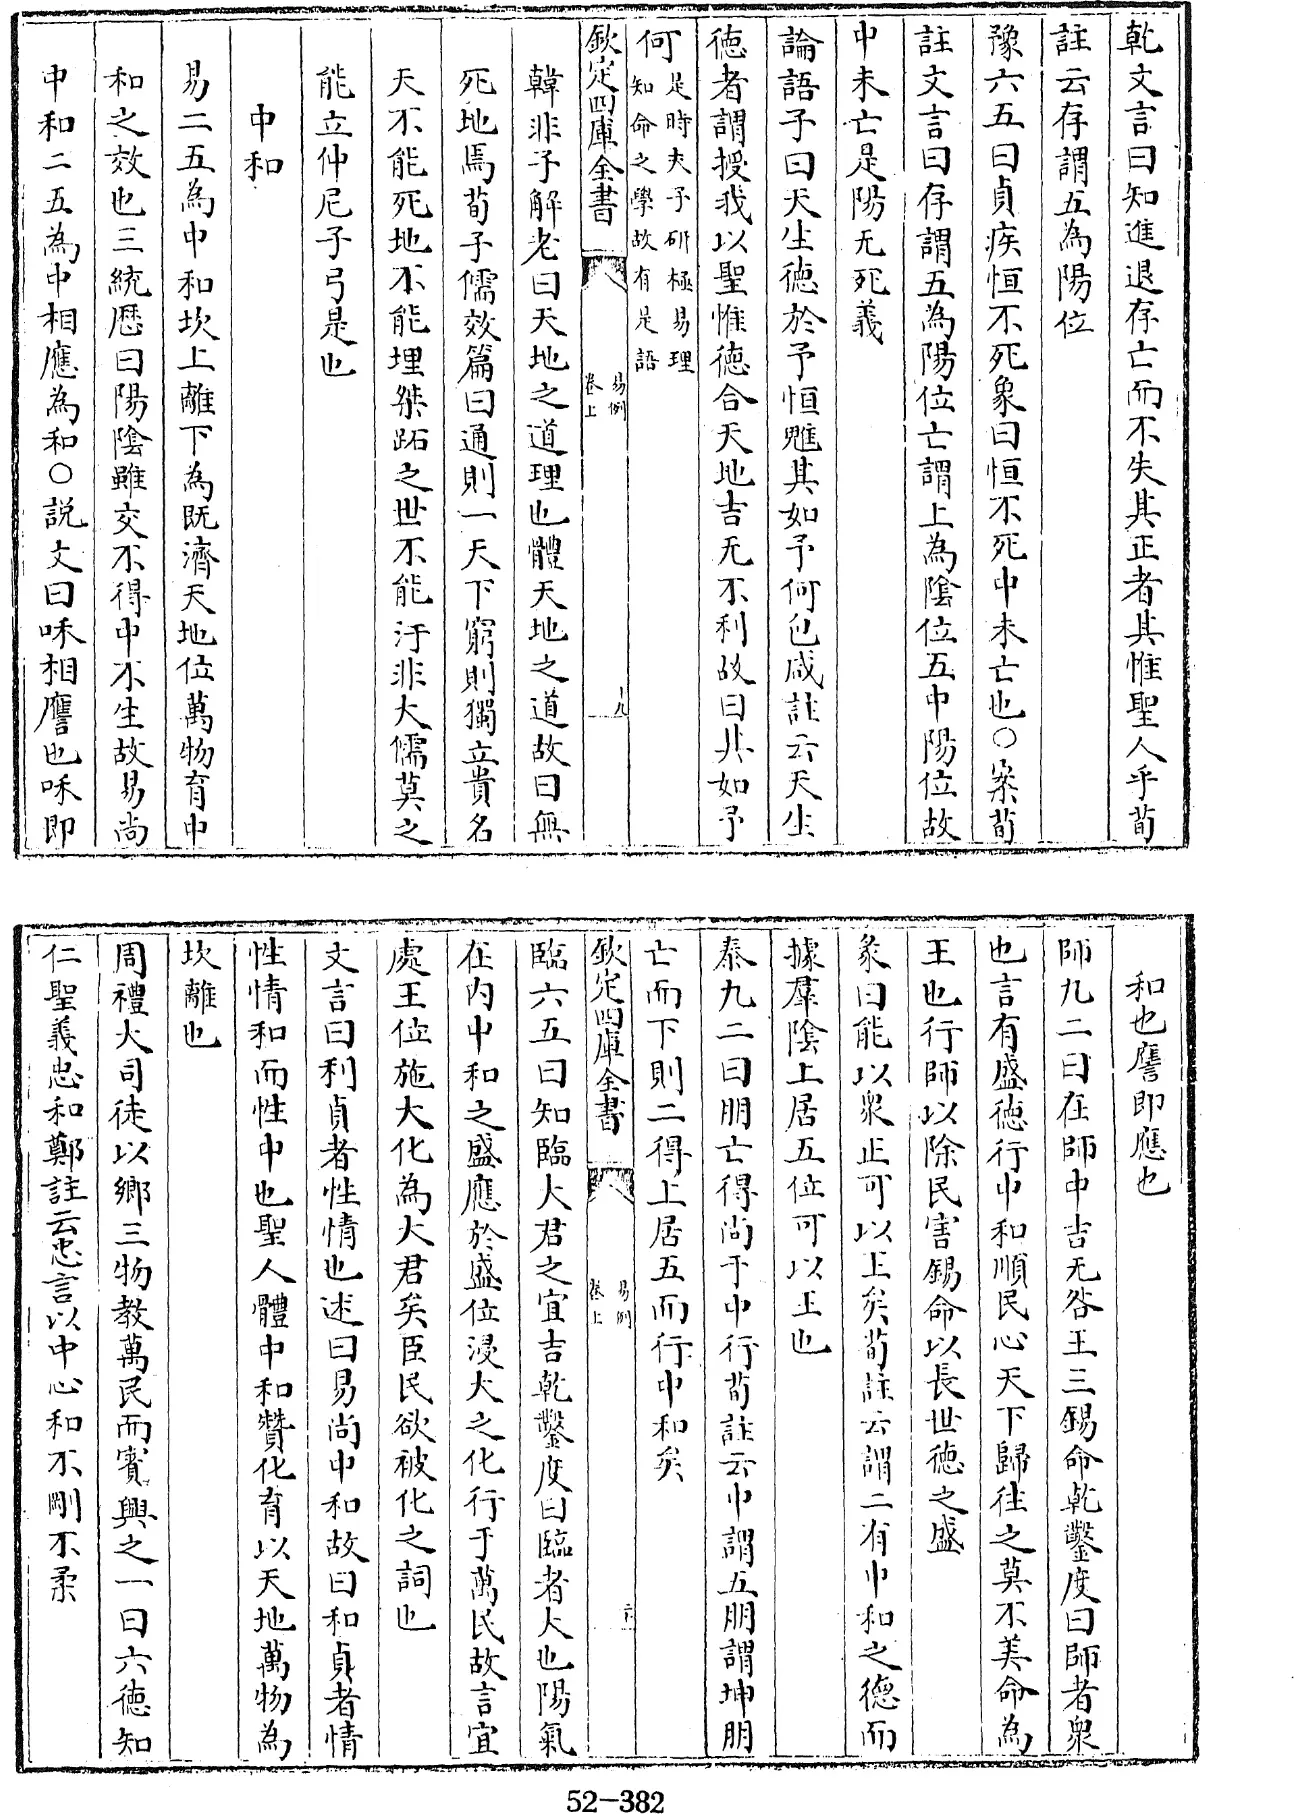 乾文言曰知進退存亡而不失其正者其惟聖人乎荀
註云存謂五為陽位
豫六五曰貞疾恒不死象曰恒不死中未亡也○案荀
註文言曰存謂五為陽位亡謂上為陰位五中陽位故
中未亡是陽无死義
論語子曰天生德於予恒魋其如予何包咸註云天生
德者謂授我以聖惟德合天地吉无不利故曰其如予
何是時夫子研極易理
知命之學故有是語
欽定四庫全書
易例
卷上
十九
韓非子解老曰天地之道理也體天地之道故曰無
死地焉荀子儒效篇曰通則一天下窮則獨立貴名
天不能死地不能埋桀跖之世不能汙非大儒莫之
能立仲尼子弓是也
中和
易二五為中和坎上離下為既濟天地位萬物育中
和之效也三統歷曰陽陰雖交不得中不生故易尚
中和二五為中相應為和○説文曰咊相譍也咊即
和也譍即應也
師九二曰在師中吉无咎王三錫命乾鑿度曰師者衆
也言有盛德行中和順民心天下歸往之莫不美命為
王也行師以除民害錫命以長世德之盛
彖曰能以衆正可以王矣荀註云謂二有中和之德而
據羣陰上居五位可以王也
泰九二曰朋亡得尚于中行荀註云中謂五朋謂坤朋
亡而下則二得上居五而行中和矣
欽定四庫全書
易例
卷上
二十
臨六五曰知臨大君之宜吉乾鑿度曰臨者大也陽氣
在内中和之盛應於盛位浸大之化行于萬民故言宜
處王位施大化為大君矣臣民欲被化之詞也
文言曰利貞者性情也述曰易尚中和故曰和貞者情
性情和而性中也聖人體中和贊化育以天地萬物為
坎離也
周禮大司徒以鄉三物教萬民而賓興之一曰六德知
仁聖義忠和鄭註云忠言以中心和不剛不柔
52-382